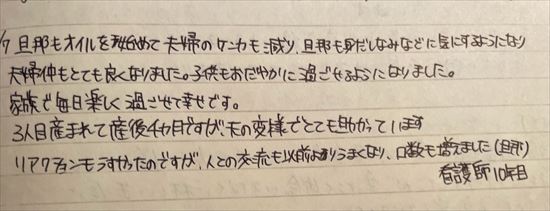 旦那もオイルを始めて夫婦のケンカも減り、旦那も身だしなみなどに気にするようになり
夫婦仲もとても良くなりました。子供もおだやかに過ごせるようになりました。
家族で毎日楽しく過ごせて幸せです。
3人目産まれて産後4ヶ月ですが、夫の変様でとても助かっています
リアクションもうすかったのですが、人との交流も以前よりうまくなり、口数も増えました(旦那)
看護師10年目